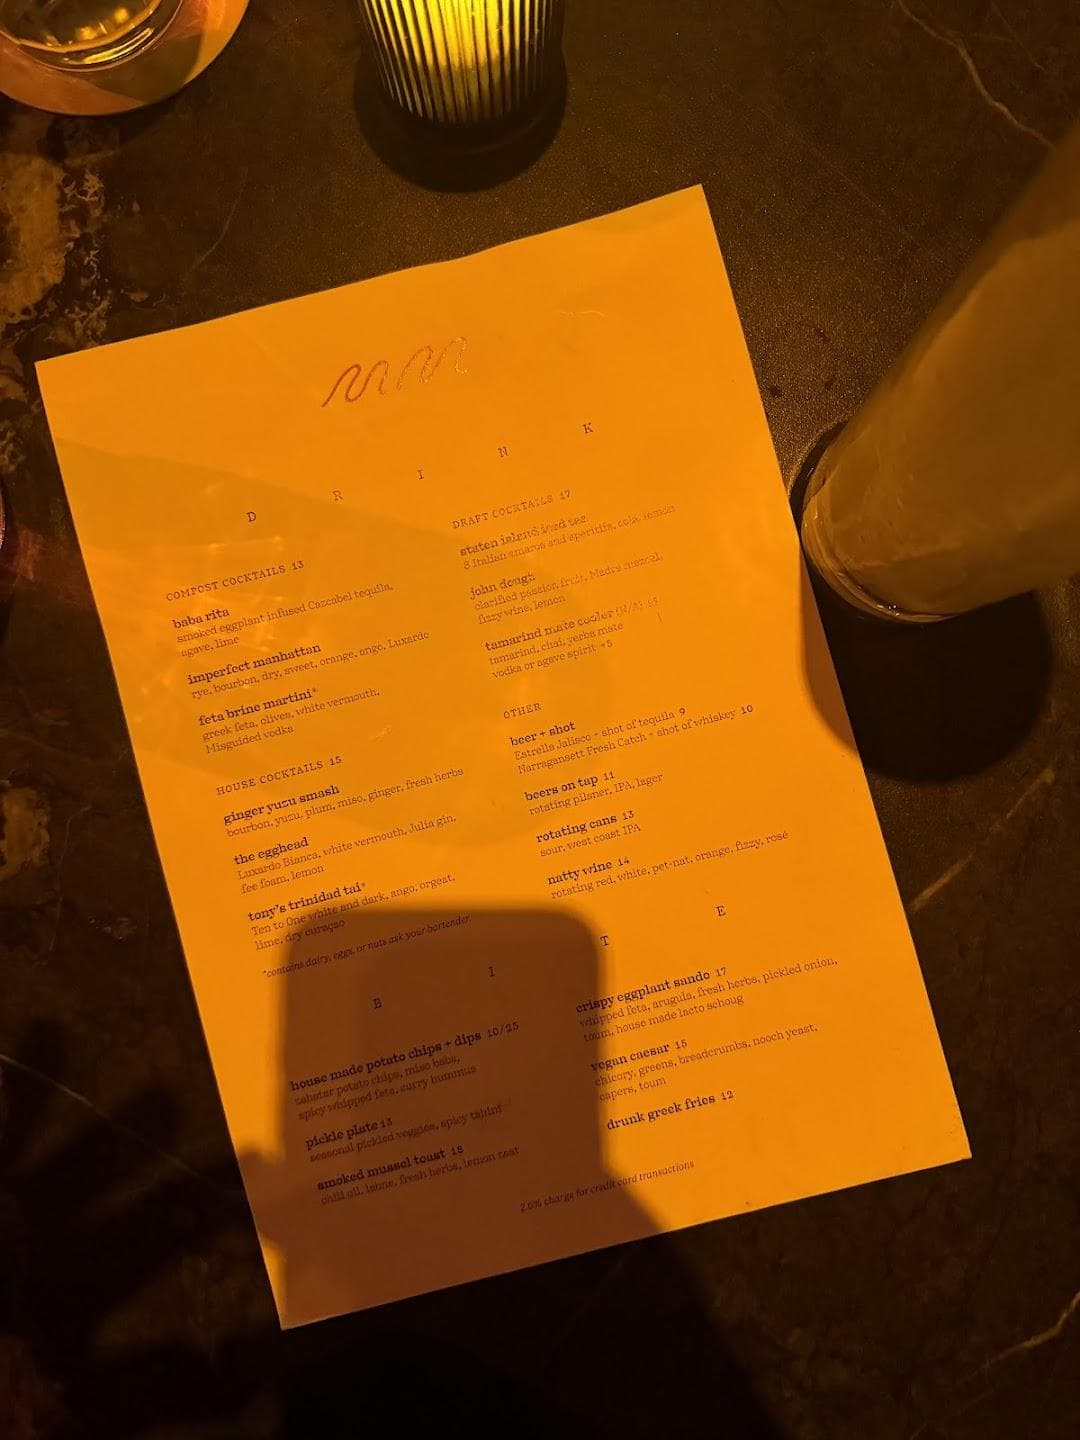 DRINK
COMPOST COCKTAILS 13
baba rita
smoked eggplant infused Cazcabel tequila,
agave, lime
imperfect manhattan
rye, bourbon, dry, sweet, orange, ango, Luxardo
feta brine martini*
greek feta, olives, white vermouth,
Misguided vodka
HOUSE COCKTAILS 15
ginger yuzu smash
bourbon, yuzu, plum, miso, ginger, fresh herbs
the egghead
Luxardo Bianca, white vermouth, Julia gin,
fee foam, lemon
tony's trinidad tai*
Ten to One white and dark, ango, orgeat,
lime, dry curaçao
*contains dairy, eggs, or nuts ask your bartender.
DRAFT COCKTAILS 17
staten island iced tea
8 Italian amaros and aperitifs, cola, lemon
john dough
clarified passion fruit, Madre mezcal,
fizzy wine, lemon
tamarind mate cooler
tamarind, chai, yerba mate
vodka or agave spirit +5
OTHER
beer + shot
Estrella Jalisco + shot of tequila 9
Narragansett Fresh Catch + shot of whiskey 10
beers on tap 11
rotating pilsner, IPA, lager
rotating cans 13
sour, west coast IPA
natty wine 14
rotating red, white, pet-nat, orange, fizzy, rosé
BITE
house made potato chips + dips 10/25
zahatar potato chips, miso baba,
spicy whipped feta, curry hummus
pickle plate 13
seasonal pickled veggies, spicy tahini
smoked mussel toast 18
chili oil, labne, fresh herbs, lemon zest
crispy eggplant sando 17
whipped feta, arugula, fresh herbs, pickled onion,
toum, house made lacto schoug
vegan caesar 15
chicory, greens, breadcrumbs, nooch yeast,
capers, toum
drunk greek fries 12
2.6% charge for credit card transactions